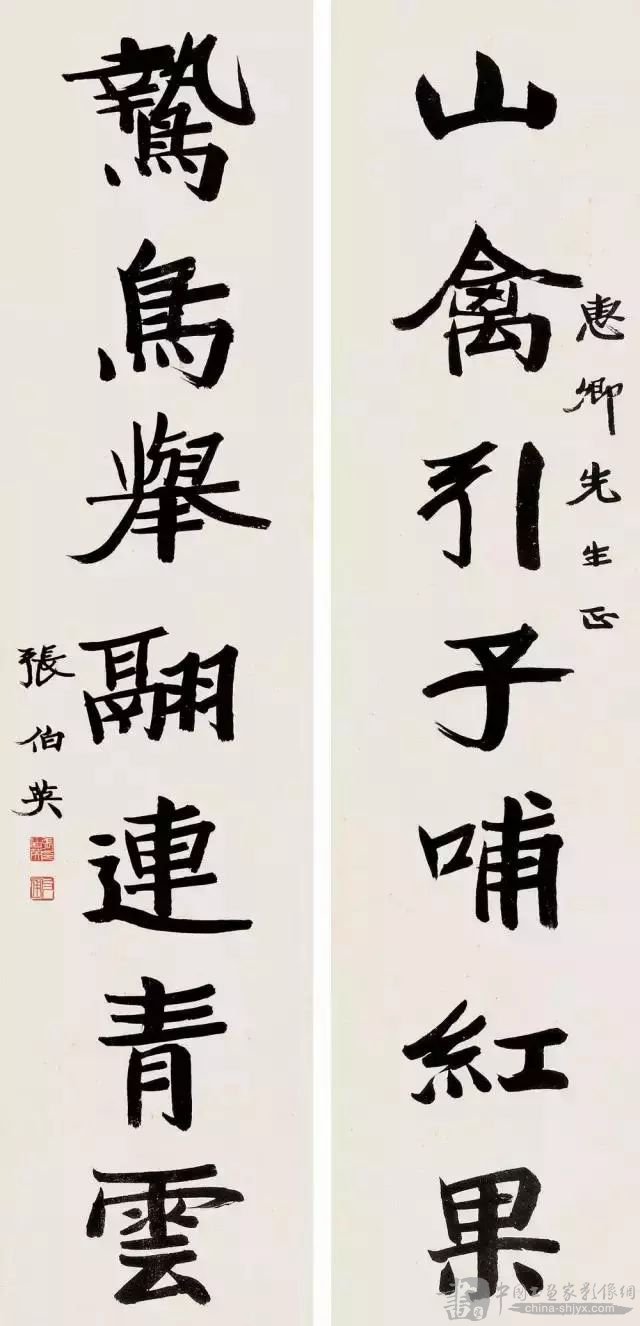 惠卿先生正
山禽引子哺紅果
鷙鳥舉翮連青雲
張伯英
中國書畫家影像網
china-shjyx.com